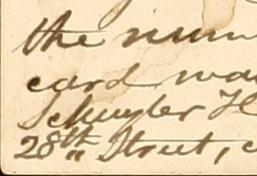 the num
card was
Schuyler H
28th Street, c